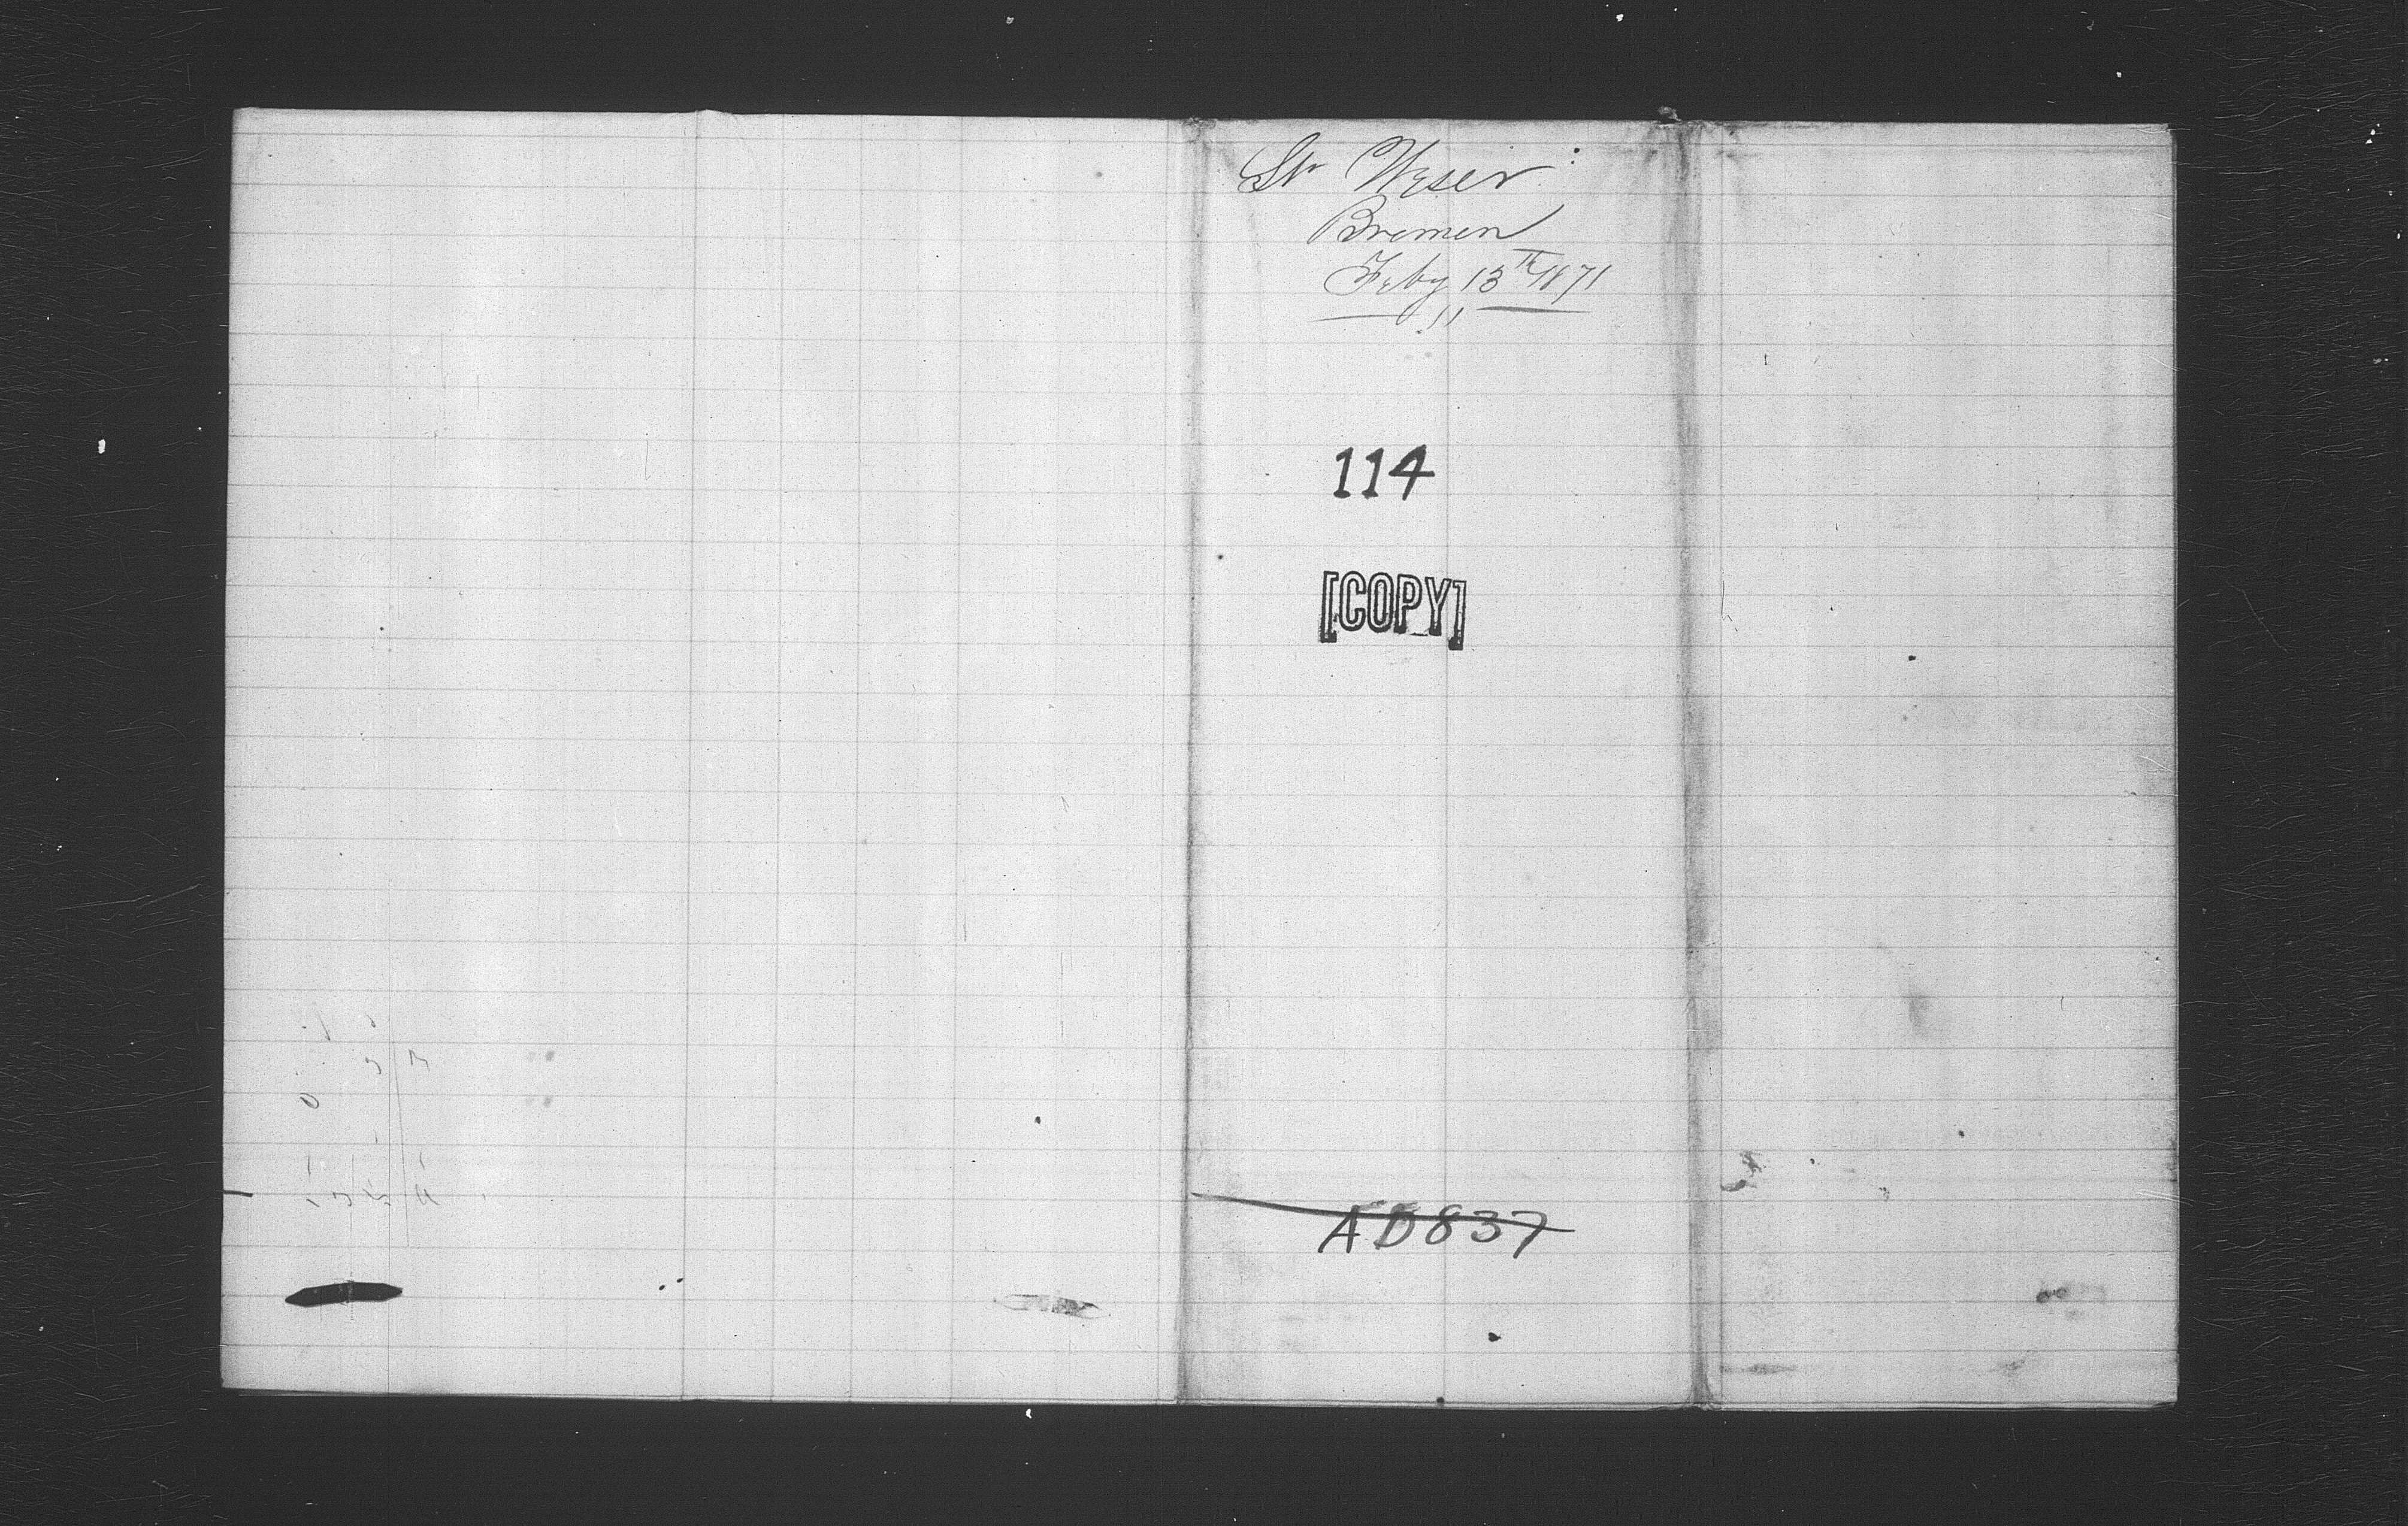 Str Weser
Bremen
Feby 13th 1871
114
[COPY]
AD837